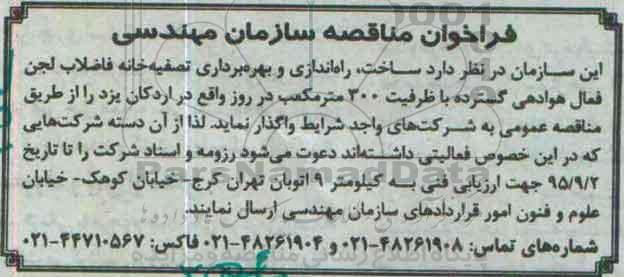 فراخوان مناقصه سازمان مهندسی
این سازمان در نظر دارد ساخت، راه‌اندازی و بهره‌برداری تصفیه‌خانه فاضلاب لجن
فعال هوادهی گسترده با ظرفیت ۳۰۰ مترمکعب در روز واقع در اردکان یزد را از طریق
مناقصه عمومی به شرکت‌های واجد شرایط واگذار نماید. لذا از آن دسته شرکت‌هایی
که در این خصوص فعالیتی داشته‌اند دعوت می‌شود رزومه و اسناد شرکت را تا تاریخ
۹۵/۹/۲ جهت ارزیابی فنی به کیلومتر ۹ اتوبان تهران کرج- خیابان کوهک- خیابان
علوم و فنون امور قراردادهای سازمان مهندسی ارسال نمایند.
شماره‌های تماس: ۴۸۲۶۱۹۰۸-۰۲۱ و ۴۸۲۶۱۹۰۴-۰۲۱ فاکس: ۴۴۷۱۰۵۶۷-۰۲۱
ParsNamadData